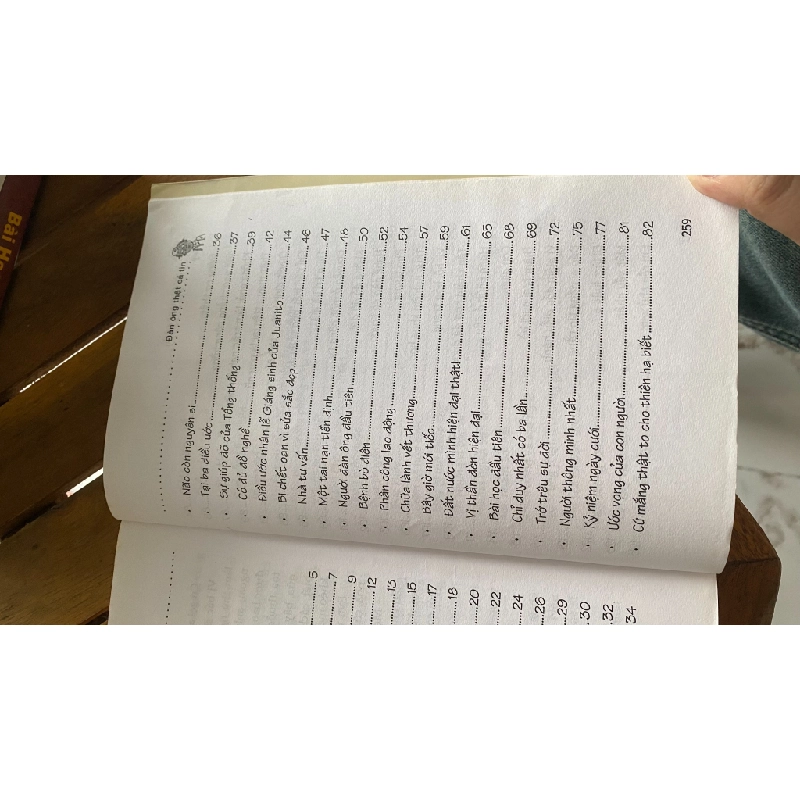 Đàn ông thật cả tin
• Nấc còn nguyên si..........36
• Tại ba điều ước..........37
• Sự giúp đỡ của Tổng thống..........39
Có đủ đồ nghề..........42
• Điều ước nhân lễ Giáng sinh của Juanito..........44
• Bị chết oan vì sửa sắc đẹp..........46
• Nhà tư vấn..........47
• Một tai nạn tiền định..........48
• Người đàn ông đầu tiên..........50
• Bệnh bù điên..........52
• Phân công lao động..........54
• Chữa lành vết thương..........57
• Bây giờ mới tiếc..........59
• Đất nước mình hiện đại thật!..........61
• Vị thần đèn hiện đại..........65
• Bài học đầu tiên..........68
• Chỉ duy nhất có ba lần..........68
• Trớ trêu sự đời..........72
• Người thông minh nhất..........75
• Kỷ niệm ngày cưới..........77
• Ước vọng của con người..........81
• Cứ mắng thật to cho thiên hạ biết..........82
259
5
7
9
12
13
15
17
18
20
22
24
26
29
30
32
34
Bài Họ